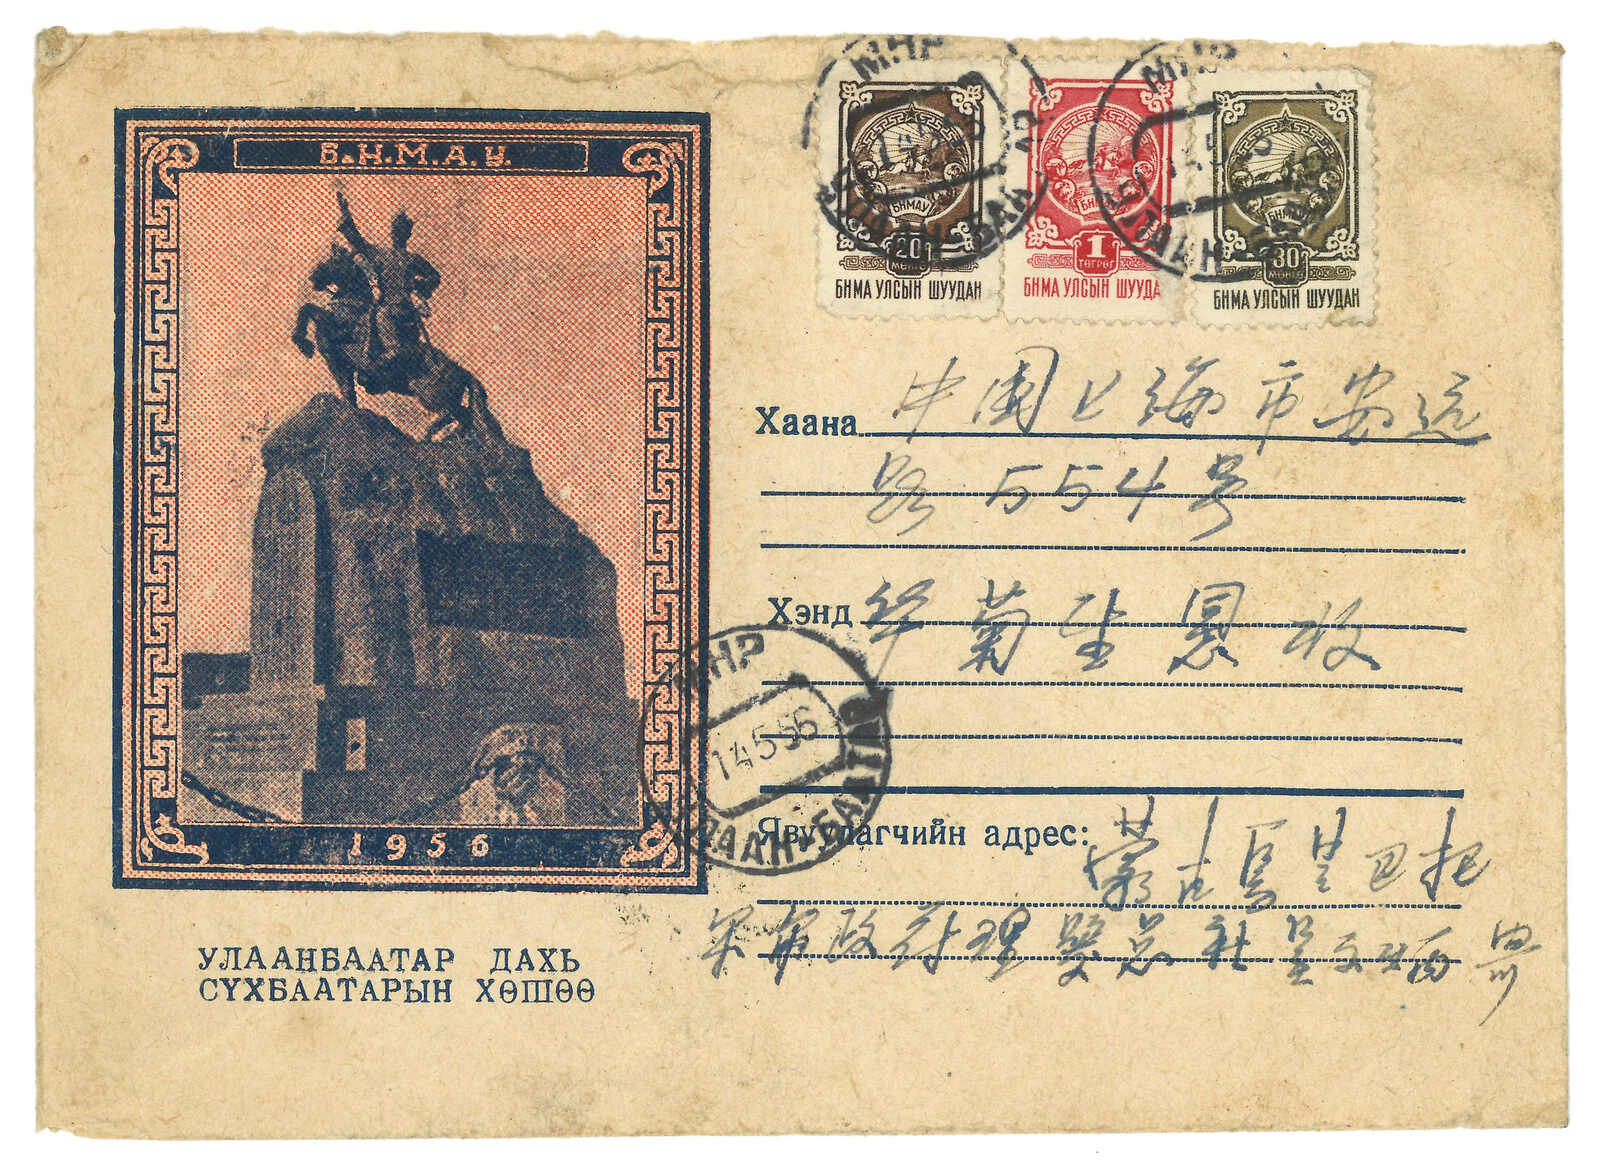 Б.Н.М.А.У.
1956
УЛААНБААТАР ДАХЬ
СҮХБААТАРЫН ХӨШӨӨ
МНР
УЛААН-БА
20
МӨНГӨ
БНМА УЛСЫН ШУУДАН
БНМАУ
1
ТӨГРӨГ
БНМА УЛСЫН ШУУДА
МНР
УЛААН
30
МӨНГӨ
БНМА УЛСЫН ШУУДАН
Хаана 中国上海市安远
路 554号
Хэнд 华菊生 收
МНР
14 5 56
УЛААН-БААТАР
Явуулагчийн адрес:
蒙古乌兰巴托
政府理 总社